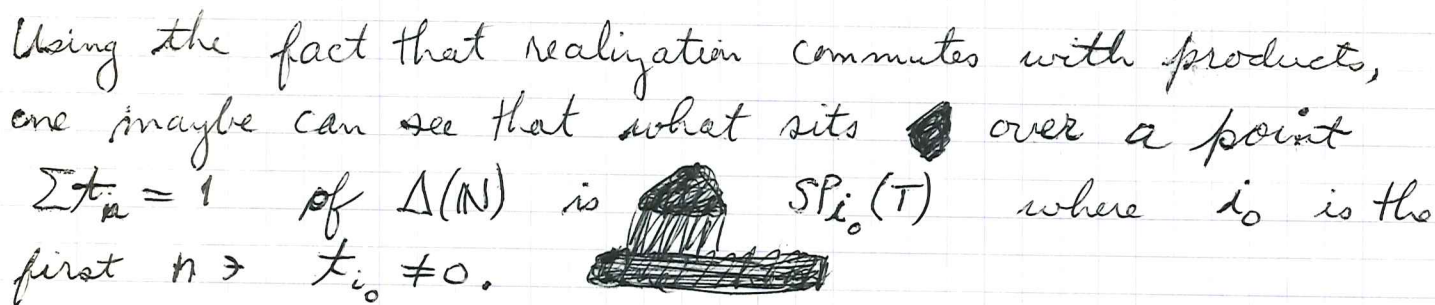 Using the fact that realization commutes with products,
one maybe can see that what sits over a point
Σtₙ = 1 of Δ(ℕ) is SP_{i₀}(T) where i₀ is the
first n ∋ t_{i₀} ≠ 0.